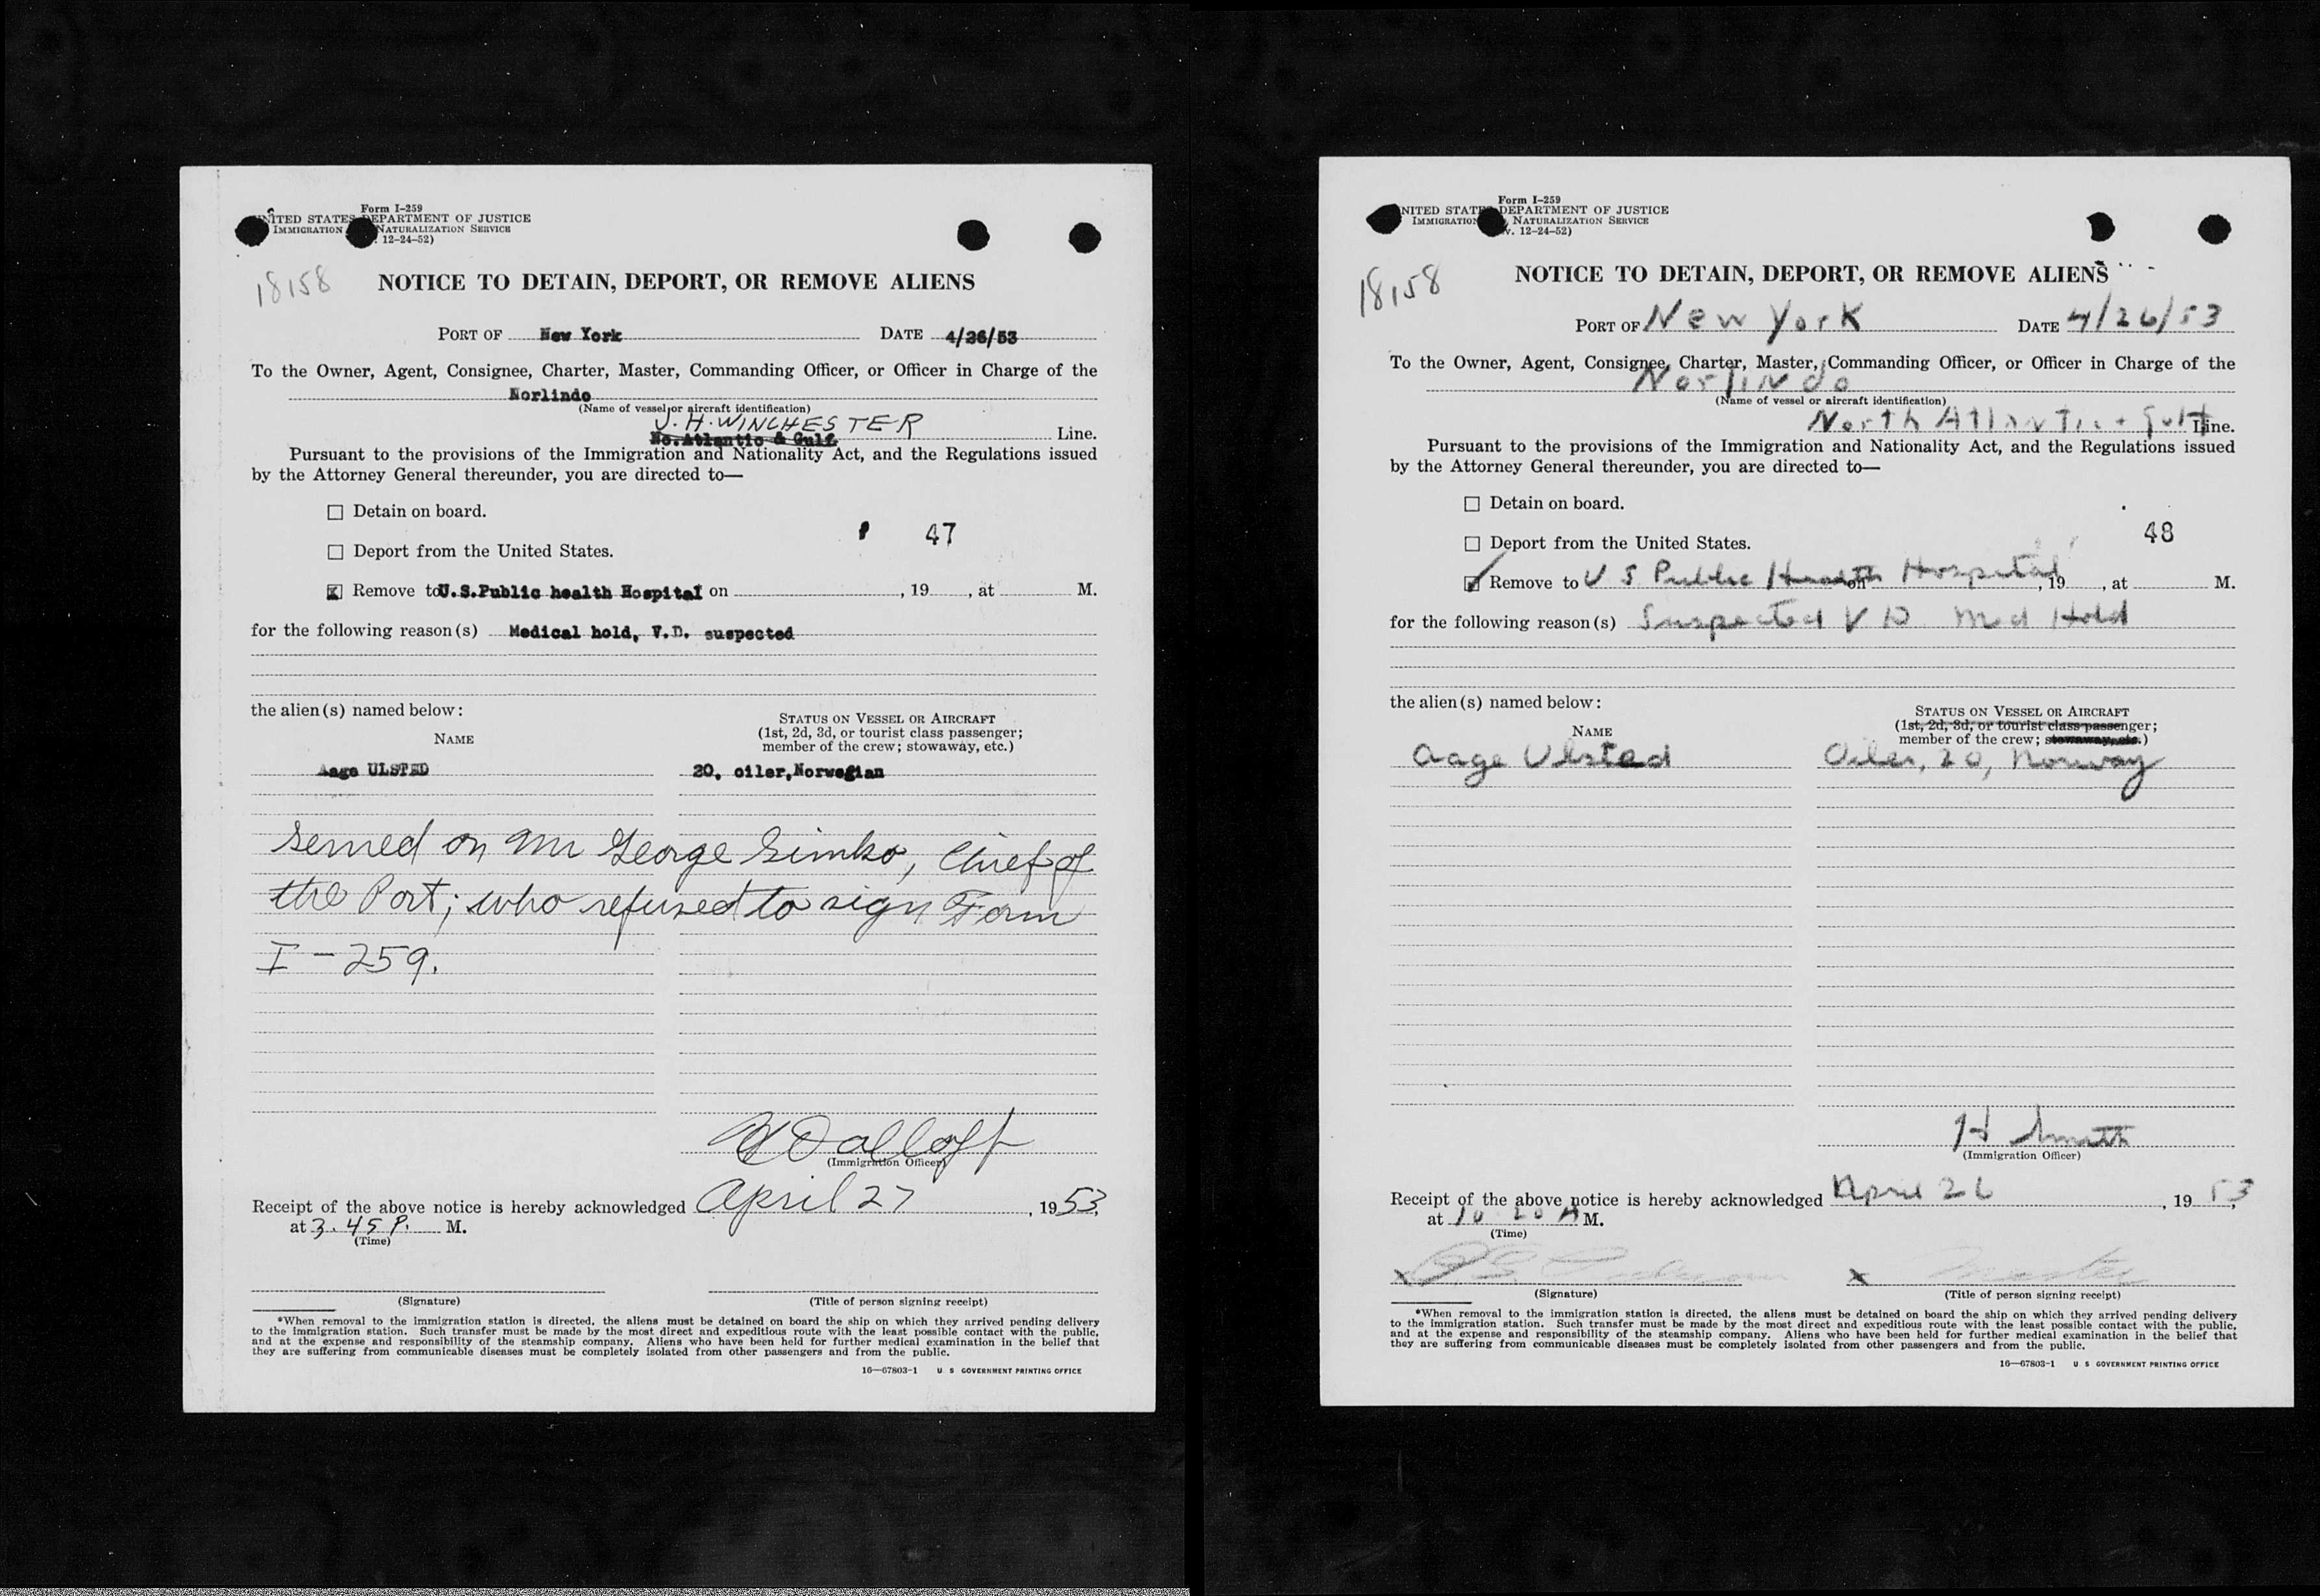 Form I-259
UNITED STATES DEPARTMENT OF JUSTICE
IMMIGRATION NATURALIZATION SERVICE
12-24-52)
18158
NOTICE TO DETAIN, DEPORT, OR REMOVE ALIENS
PORT OF New York DATE 4/26/53
To the Owner, Agent, Consignee, Charter, Master, Commanding Officer, or Officer in Charge of the
Norlindo
(Name of vessel or aircraft identification)
J. H. WINCHESTER
No. Atlantic & Gulf Line.
Pursuant to the provisions of the Immigration and Nationality Act, and the Regulations issued
by the Attorney General thereunder, you are directed to—
Detain on board.
47
Deport from the United States.
Remove to U.S.Public health Hospital on , 19 , at M.
for the following reason(s) Medical hold, V.D. suspected
the alien(s) named below:
NAME
STATUS ON VESSEL OR AIRCRAFT
(1st, 2d, 3d, or tourist class passenger;
member of the crew; stowaway, etc.)
Aage ULSTED 20, oiler,Norwegian
Served on Mr George Simko, Chief of
the Port; who refused to sign Form
I-259.
(Immigration Officer)
Receipt of the above notice is hereby acknowledged April 27, 1953,
at 3.45 P. M.
(Time)
(Signature) (Title of person signing receipt)
*When removal to the immigration station is directed, the aliens must be detained on board the ship on which they arrived pending delivery
to the immigration station. Such transfer must be made by the most direct and expeditious route with the least possible contact with the public,
and at the expense and responsibility of the steamship company. Aliens who have been held for further medical examination in the belief that
they are suffering from communicable diseases must be completely isolated from other passengers and from the public.
16—67803-1 U S GOVERNMENT PRINTING OFFICE
Form I-259
UNITED STATES DEPARTMENT OF JUSTICE
IMMIGRATION NATURALIZATION SERVICE
v. 12-24-52)
18158
NOTICE TO DETAIN, DEPORT, OR REMOVE ALIENS
PORT OF New York DATE 4/26/53
To the Owner, Agent, Consignee, Charter, Master, Commanding Officer, or Officer in Charge of the
Norlindo
(Name of vessel or aircraft identification)
North Atlantic + Gulf Line.
Pursuant to the provisions of the Immigration and Nationality Act, and the Regulations issued
by the Attorney General thereunder, you are directed to—
Detain on board.
48
Deport from the United States.
Remove to U S Public Health Hospital on , 19 , at M.
for the following reason(s) Suspected V D Med Hold
the alien(s) named below:
NAME
STATUS ON VESSEL OR AIRCRAFT
(1st, 2d, 3d, or tourist class passenger;
member of the crew; stowaway, etc.)
Aage Ulsted Oiler, 20, Norway
H Smith
(Immigration Officer)
Receipt of the above notice is hereby acknowledged April 26, 1953,
at 10 20 A M.
(Time)
x x Master
(Signature) (Title of person signing receipt)
*When removal to the immigration station is directed, the aliens must be detained on board the ship on which they arrived pending delivery
to the immigration station. Such transfer must be made by the most direct and expeditious route with the least possible contact with the public,
and at the expense and responsibility of the steamship company. Aliens who have been held for further medical examination in the belief that
they are suffering from communicable diseases must be completely isolated from other passengers and from the public.
16—67803-1 U S GOVERNMENT PRINTING OFFICE